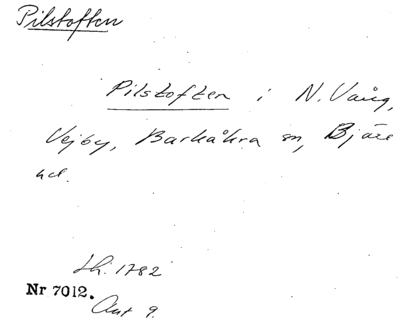 Pilstoften
Pilstoften i N. Vång,
Vejby, Barkåkra sn, Bjäre
hd.
Lh. 1782
Nr 7012.
Akt 9.